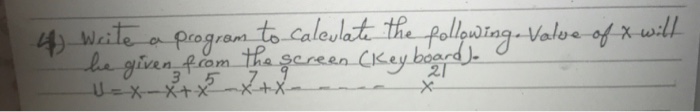 4) Write a program to calculate the following. Value of x will
be given from the screen (Keyboard).
U = x - x³ + x⁵ - x⁷ + x⁹ - - - - - - x²¹